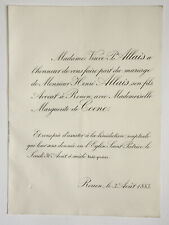 Madame Veuve P. Allais a
l'honneur de vous faire part du mariage
de Monsieur Henri Allais son fils
Avocat à Rouen, avec Mademoiselle
Marguerite de Coene
Et vous prie d'assister à la bénédiction nuptiale
qui leur sera donnée en l'Eglise Saint Patrice, le
Août à midi très précis
Rouen, le Août 1883